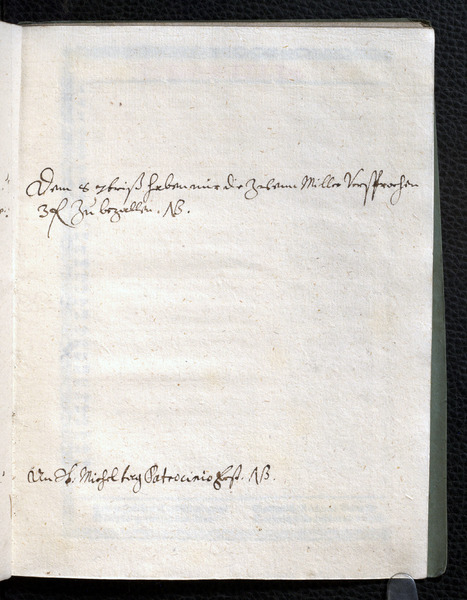 Dem 8 7briß haben mir die zuben Miller Versprochen
3 fl zu bezallen. NB.
An St. Michel tag Patrocinio fest. NB.